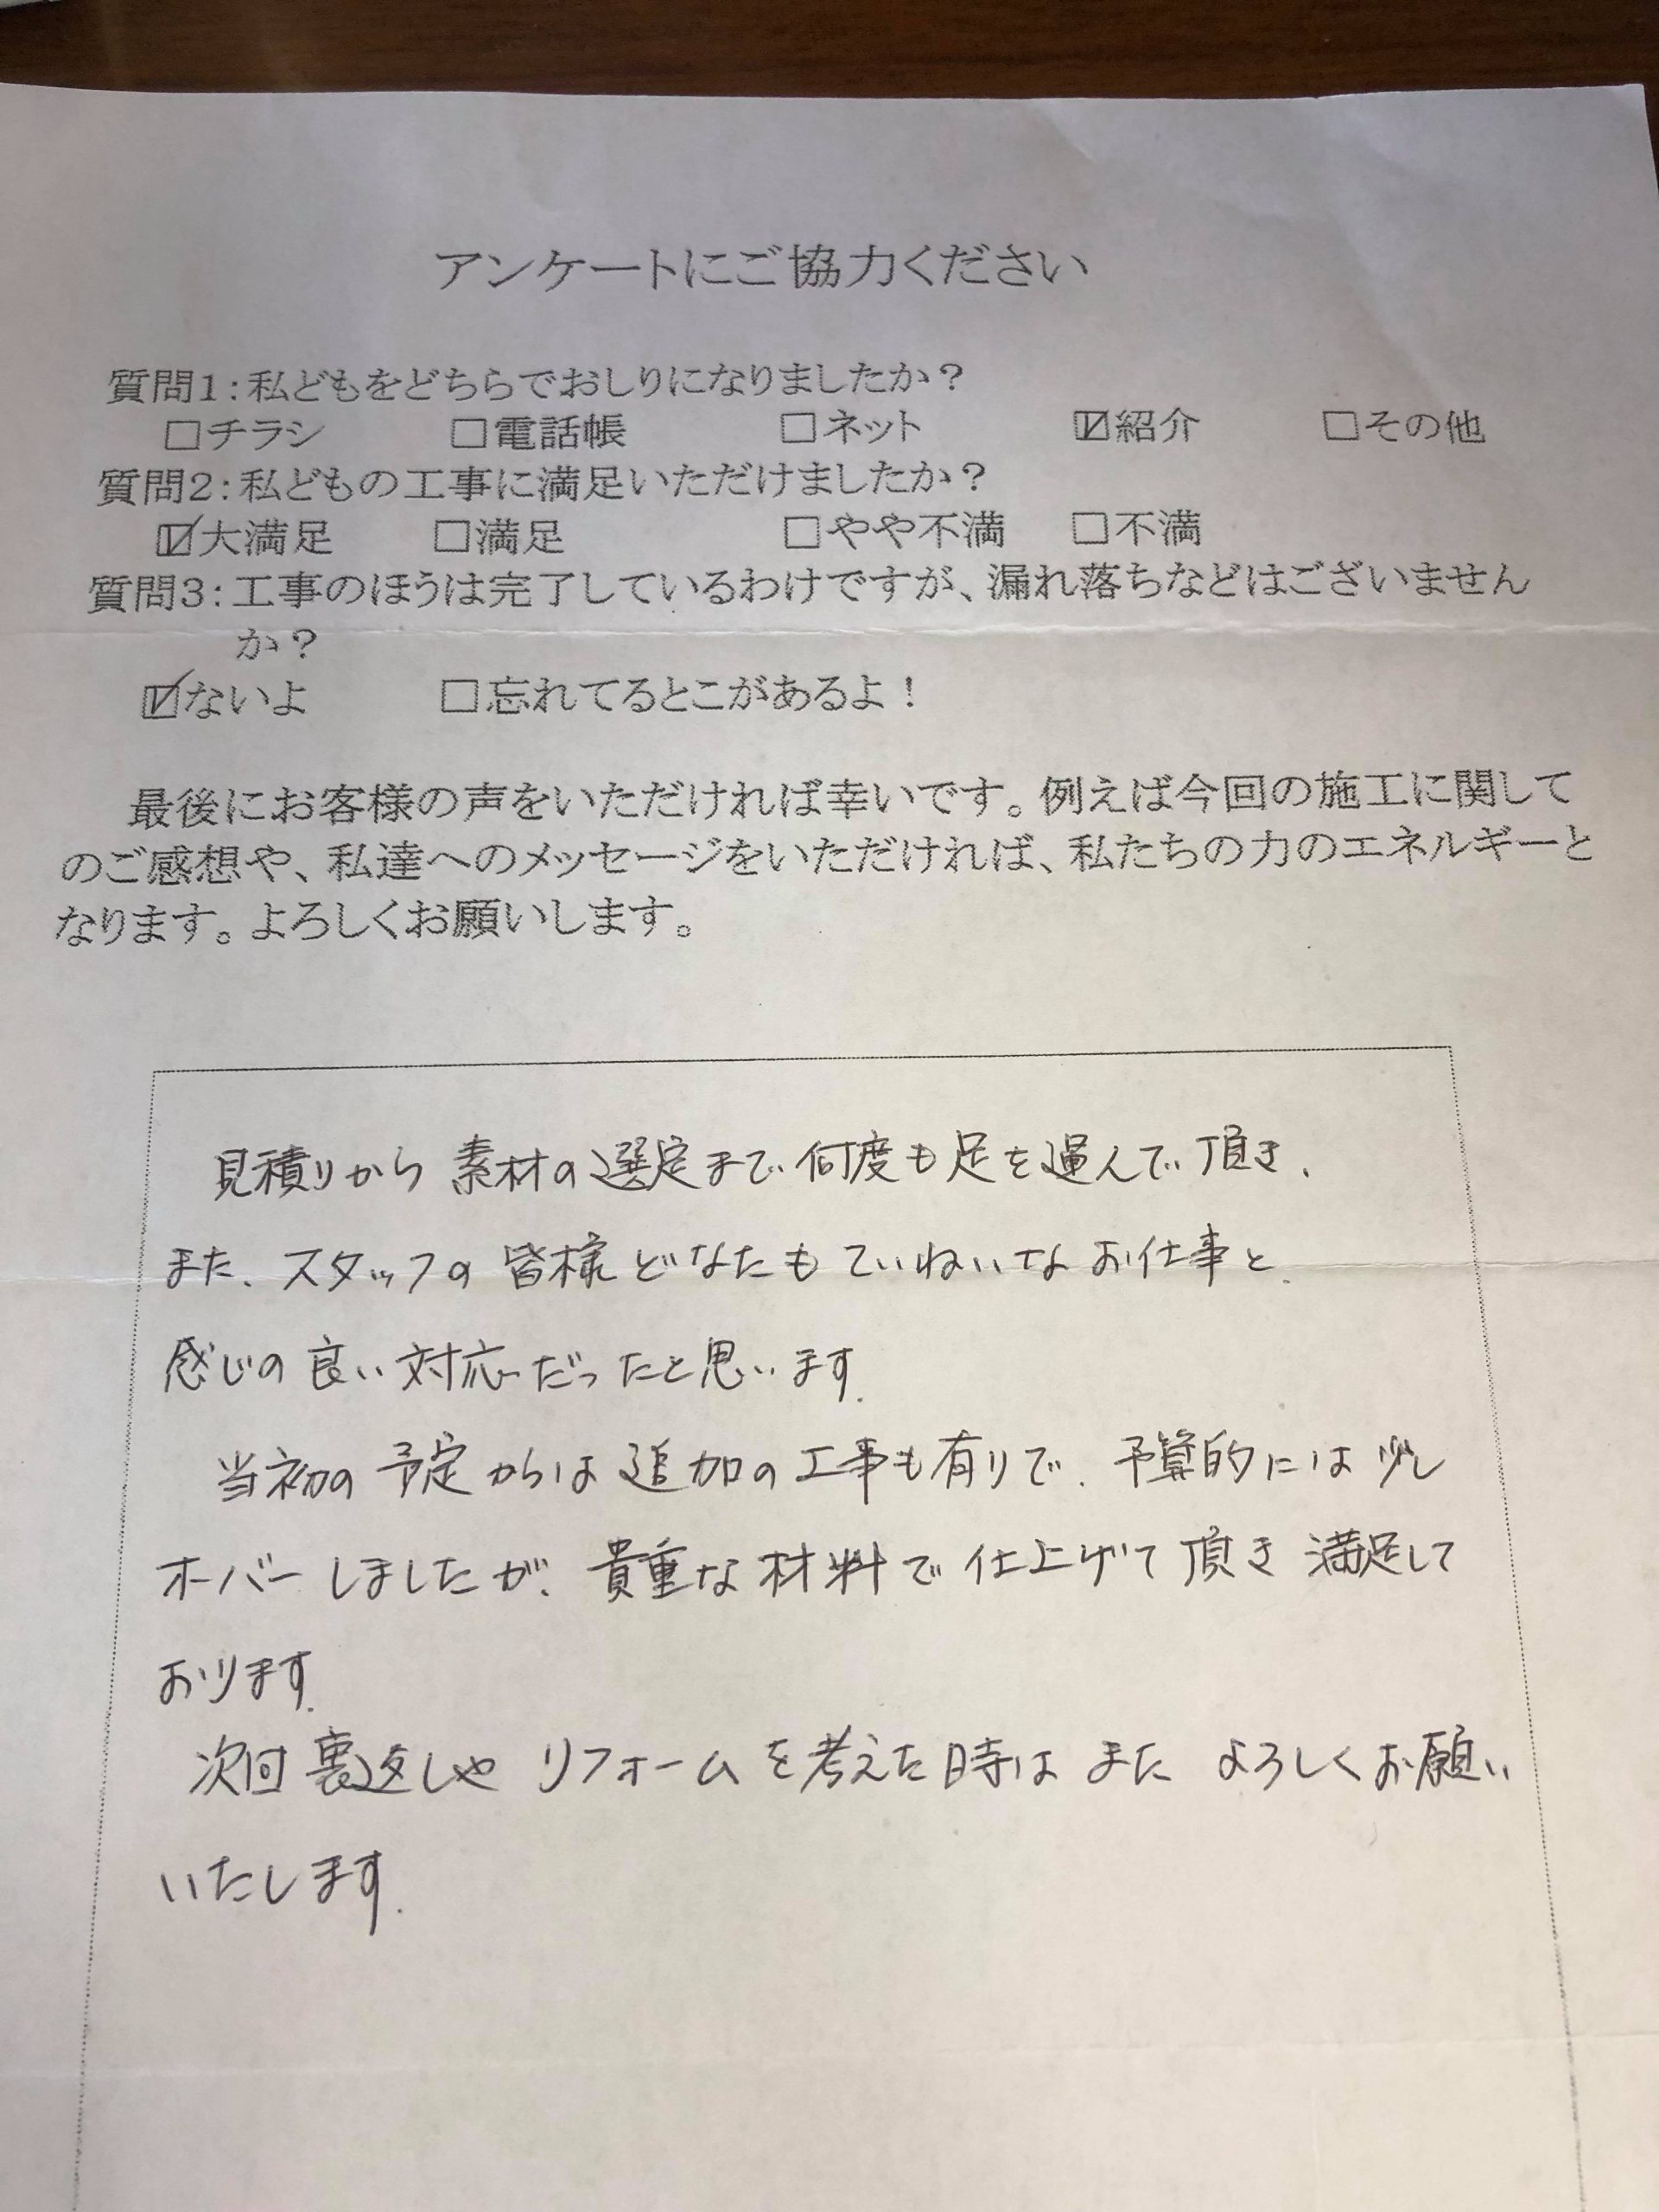 アンケートにご協力ください
質問1:私どもをどちらでおしりになりましたか？
□チラシ □電話帳 □ネット ☑紹介 □その他
質問2:私どもの工事に満足いただけましたか？
☑大満足 □満足 □やや不満 □不満
質問3:工事のほうは完了しているわけですが、漏れ落ちなどはございません
か？
☑ないよ □忘れてるとこがあるよ！
最後にお客様の声をいただければ幸いです。例えば今回の施工に関して
のご感想や、私達へのメッセージをいただければ、私たちの力のエネルギーと
なります。よろしくお願いします。
見積りから素材の選定まで何度も足を運んで頂き、
また、スタッフの皆様どなたもていねいなお仕事と、
感じの良い対応だったと思います。
当初の予定からは追加の工事も有りで、予算的には少し
オーバーしましたが、貴重な材料で仕上げて頂き満足して
おります。
次回裏返しやリフォームを考えた時はまたよろしくお願い
いたします。